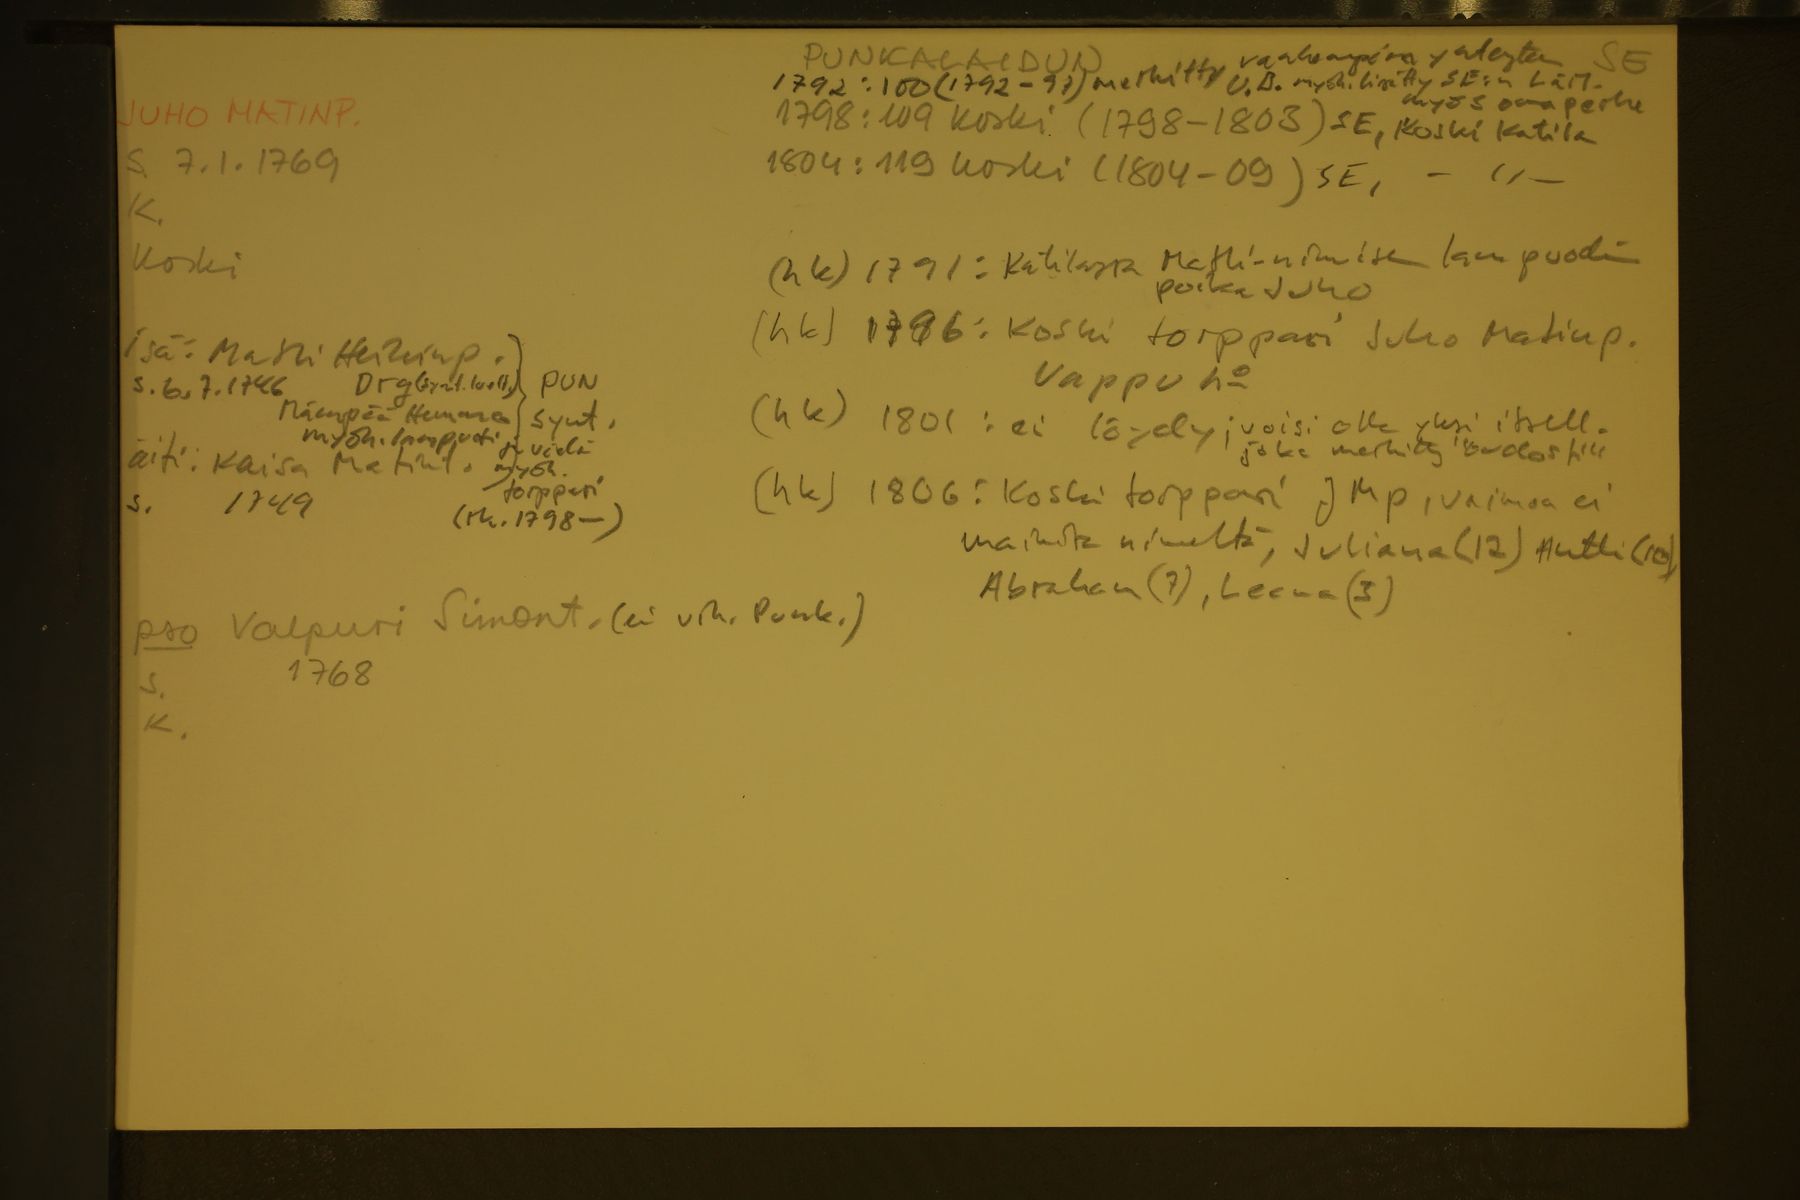 JUHO MATINP.
S. 7.1.1769
K.
Koski
isä: Matti Heikinp.
s. 6.7.1746 Drg (synt. luett.) PUN
Mäenpää Humma synt.
myöh. lampuoti ja vielä
äiti: Kaisa Matint. myöh.
torppari
s. 1749
(rk. 1798-)
pso Valpuri Simont. (ei vih. Punk.)
s. 1768
K.
PUNKALAIDUN SE
1792: 100 (1792-97) merkitty vanhempiensa yhteyteen
U.B. myöh. lisätty SE:n
myös oma perhe
1798: 109 Koski (1798-1803) SE, Koski Katila
1804: 119 Koski (1804-09) SE, - " -
(hk) 1791: Katilassa Matti-nimisen lampuodin
poika Juho
(hk) 1796: Koski torppari Juho Matinp.
Vappu ho
(hk) 1801: ei löydy; voisi olla yksi itsell.
joka merkitty
(hk) 1806: Koski torppari J Mp, vaimoa ei
mainita nimeltä, Juliana (12) Antti (10),
Abraham (7), Leena (3)